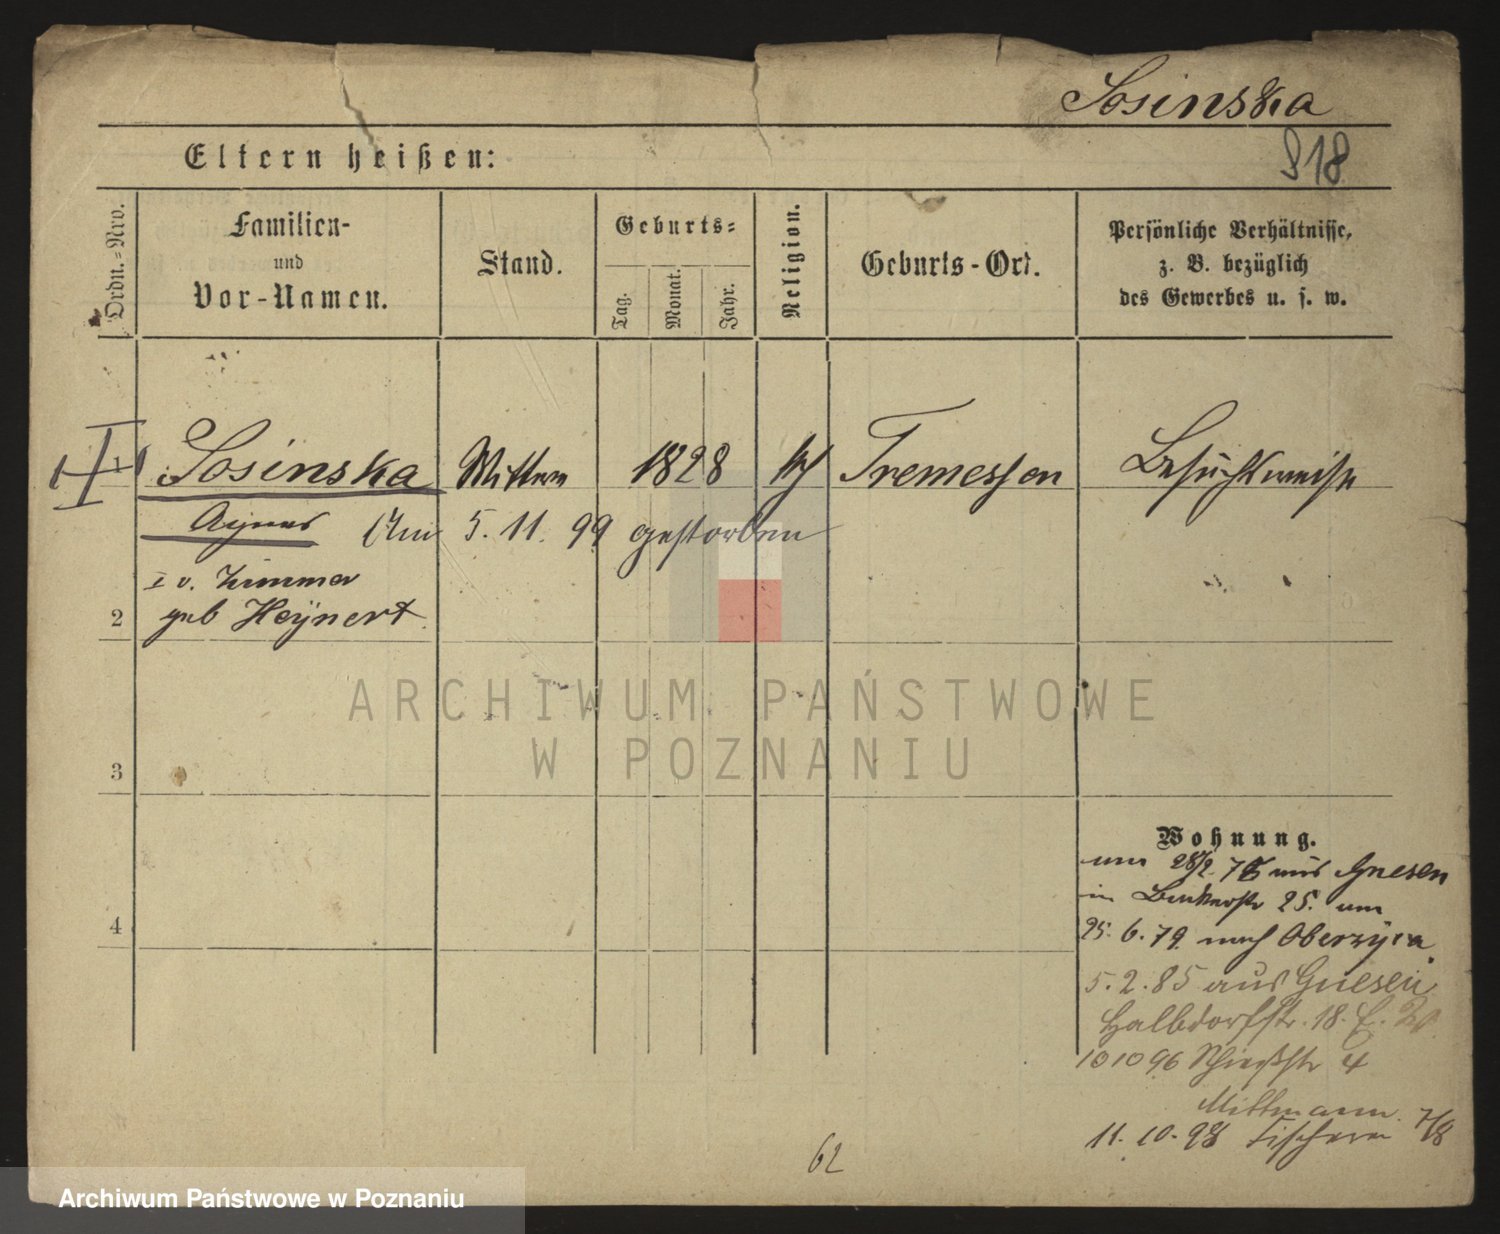 Sosinska
Eltern heißen:
918
Ordn.=Nro.
Familien-
und
Vor-Namen.
Stand.
Geburts=
Tag.
Monat.
Jahr.
Religion.
Geburts-Ort.
Persönliche Verhältnisse,
z. B. bezüglich
des Gewerbes u. s. w.
1 Sosinska Wittwe 1828 k Tremessen Besuchsweise
Agnes (Am 5. 11. 99 gestorben
I v. Zimmer
2 geb Heÿnert
3
4
Wohnung.
um 28/2. 78 aus Gnesen
in Bäckerstr 25. um
25. 6. 79. nach Oberzÿca.
5. 2. 85 aus Gnesen
Halbdorfstr. 18.
10 10 96 Schießstr 4
Mittmann.
11. 10. 98 Fischerei 7/8
62
ARCHIWUM PAŃSTWOWE
W POZNANIU
Archiwum Państwowe w Poznaniu